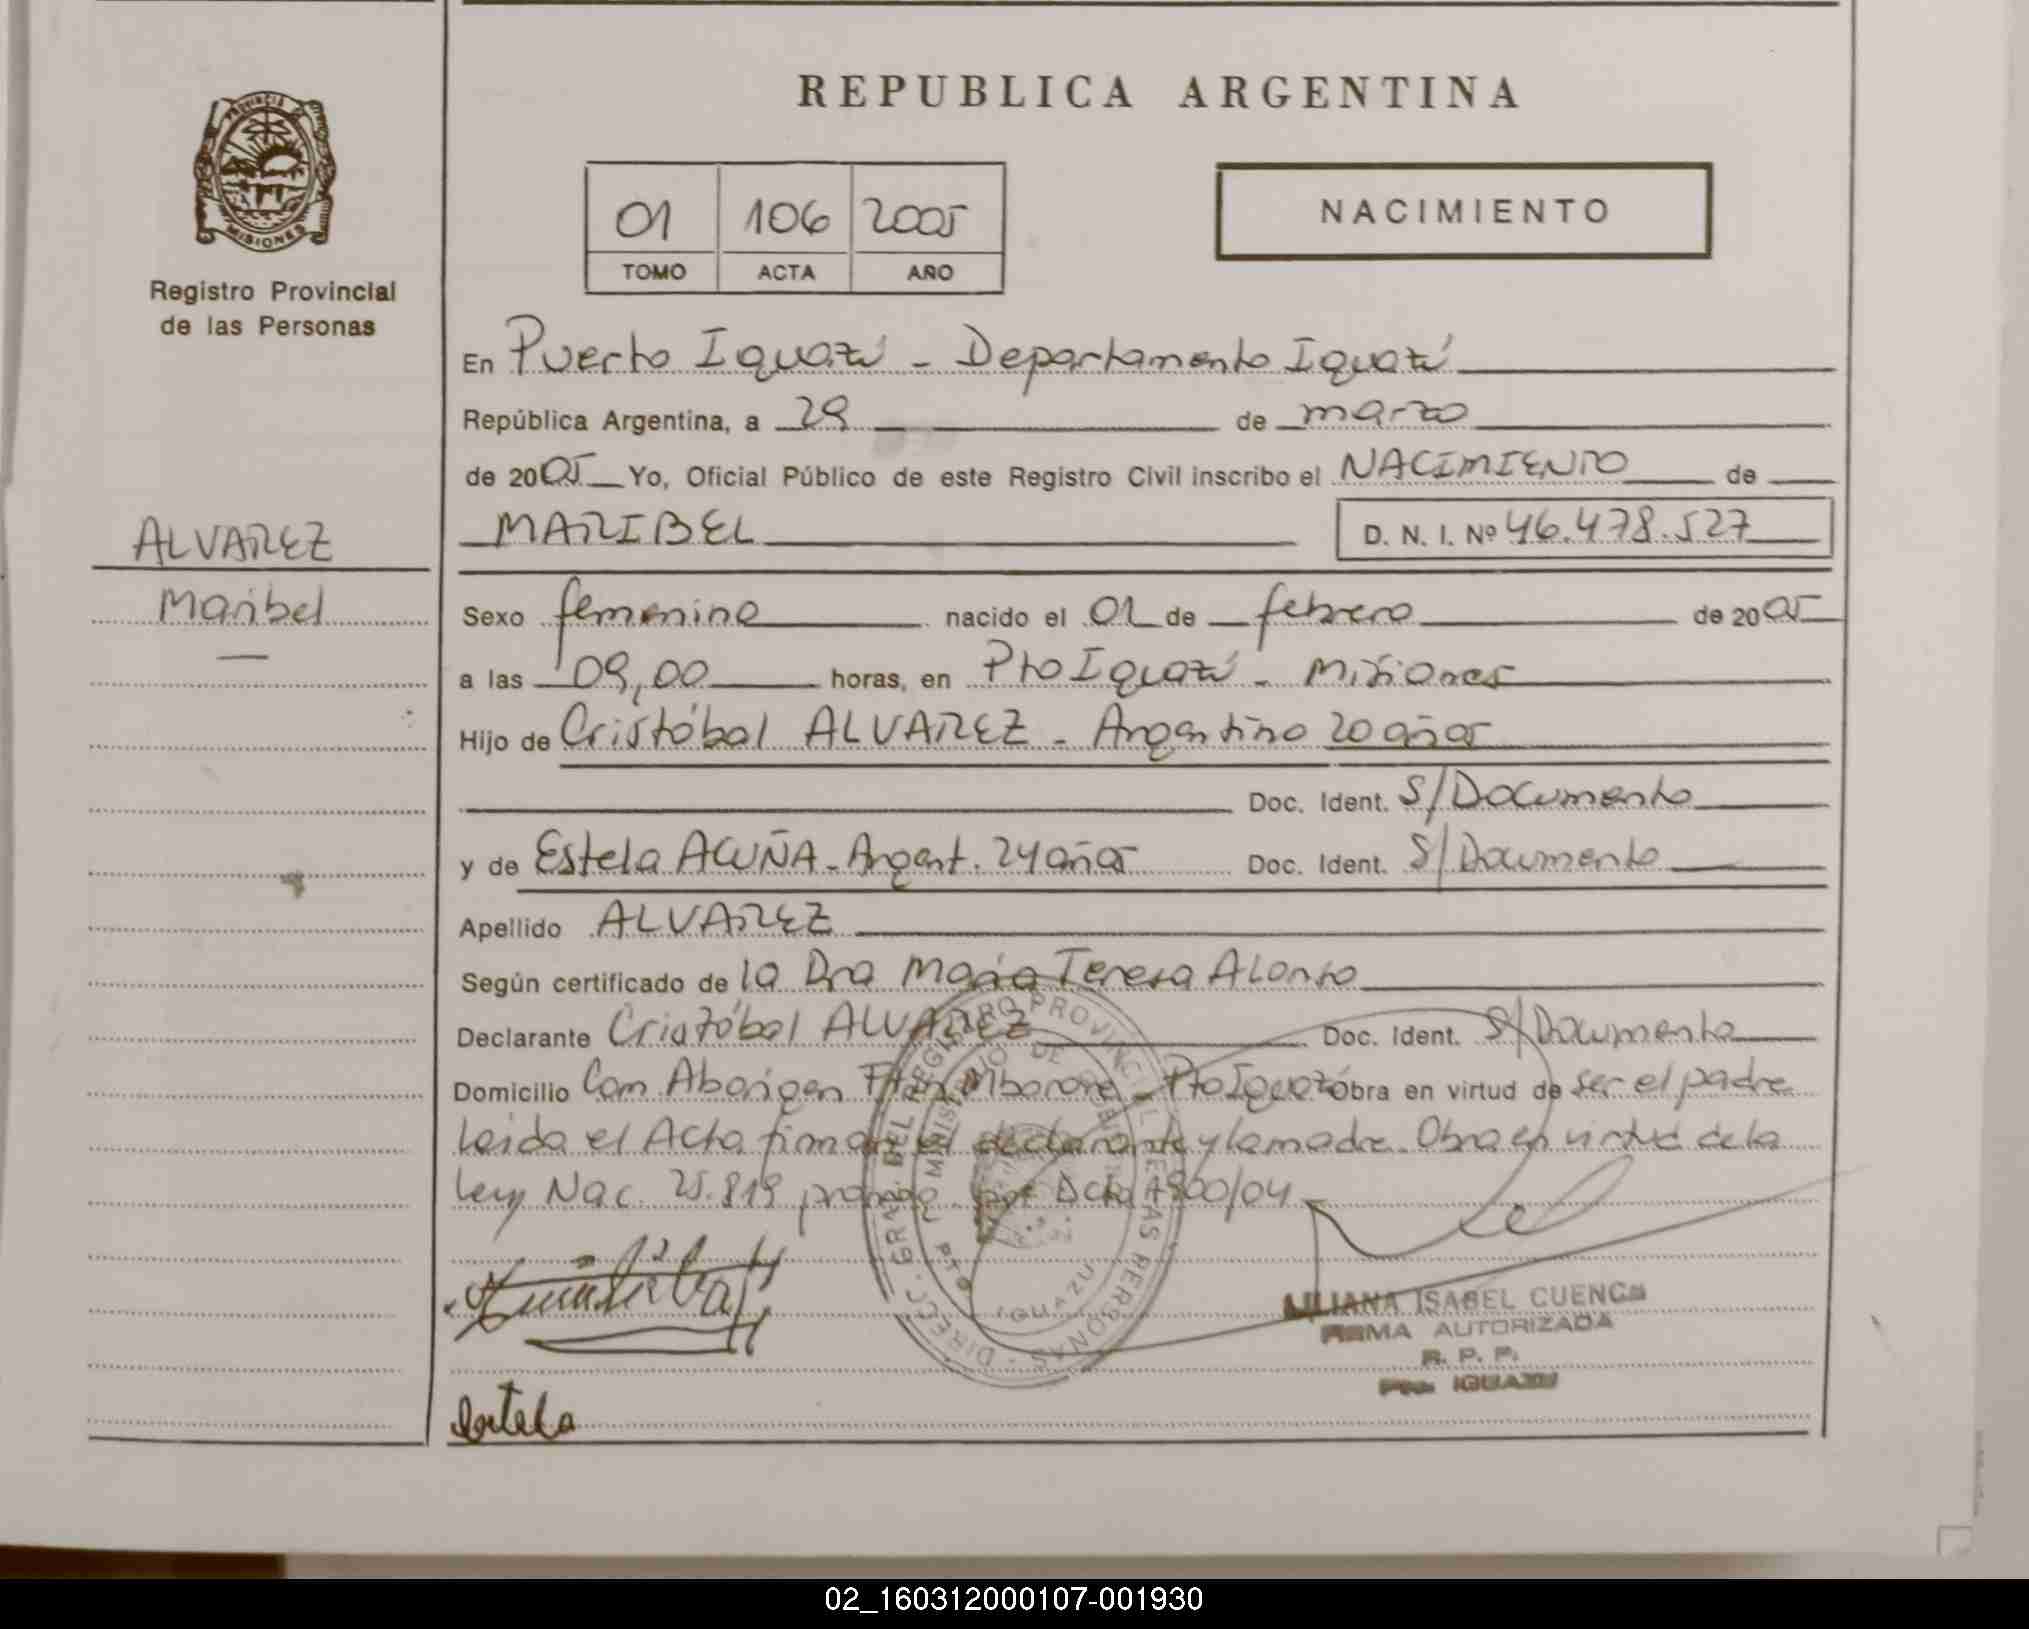 REPUBLICA ARGENTINA
PROVINCIA DE
MISIONES
Registro Provincial
de las Personas
01 106 2005
TOMO ACTA AÑO
NACIMIENTO
En Puerto Iguazú - Departamento Iguazú
República Argentina, a 29 de marzo
de 2005 Yo, Oficial Público de este Registro Civil inscribo el NACIMIENTO de
MARIBEL D. N. I. Nº 46.478.527
ALVAREZ
Maribel
Sexo femenino nacido el 01 de febrero de 2005
a las 09,00 horas, en Pto Iguazú - Misiones
Hijo de Cristóbal ALVAREZ - Argentino 20 años
Doc. Ident. S/Documento
y de Estela ACUÑA - Argent. 24 años Doc. Ident. S/Documento
Apellido ALVAREZ
Según certificado de la Dra Maria Teresa Alonso
Declarante Cristóbal ALVAREZ Doc. Ident. S/Documento
Domicilio Com Aborigen Mborore - Pto Iguazú obra en virtud de ser el padre
Leida el Acta firman el declarante y la madre. Obra en virtud de la
Ley Nac. 25.819 por Dcto 1900/04
DIREC. GRAL. DEL REGISTRO PROVINCIAL DE LAS PERSONAS
MINISTERIO DE GOBIERNO
PTO IGUAZU
LILIANA ISABEL CUENCA
FIRMA AUTORIZADA
R. P. P.
Pto. IGUAZU
Estela
02_160312000107-001930